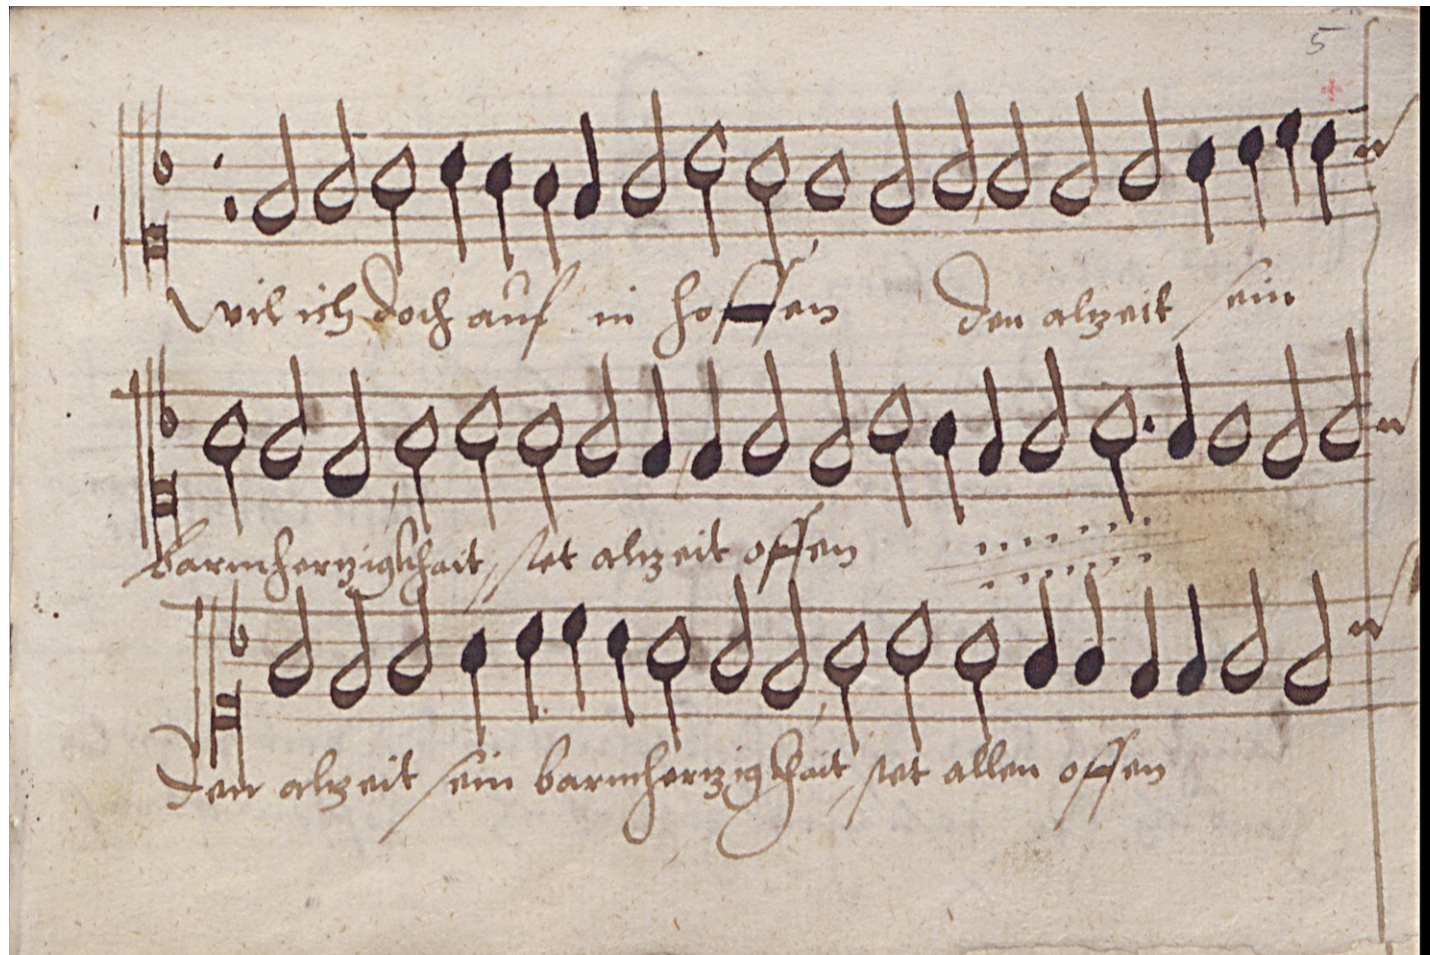 5
wil ich doch auf in hoffen den alzeit sein
barmhertzigkhait stet alzeit offen
den alzeit sein barmhertzigkhait stet allen offen